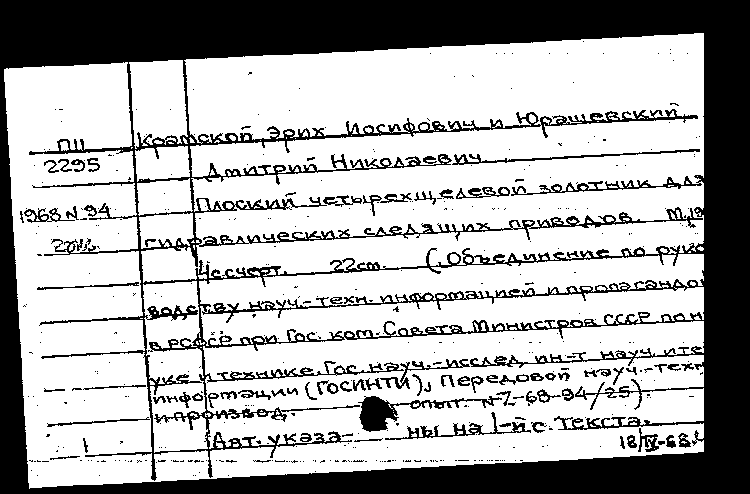 П11 Крамской, Эрих Иосифович и Юрашевский,
2295 Дмитрий Николаевич.
Плоский четырехщелевой золотник для
1968 N 94
гидравлических следящих приводов. М, 19
4 с. с черт. 22 см. (Объединение по руко
водству науч.-техн. информацией и пропагандой
в РСФСР при Гос. ком. Совета Министров СССР по н
уке и технике. Гос. науч.-исслед. ин-т науч. и те
информации (ГОСИНТИ), Передовой науч.-техн
и производ. опыт. N 7-68-94/25).
1 Авт. указа- ны на 1-й с. текста.
18/IV-68.